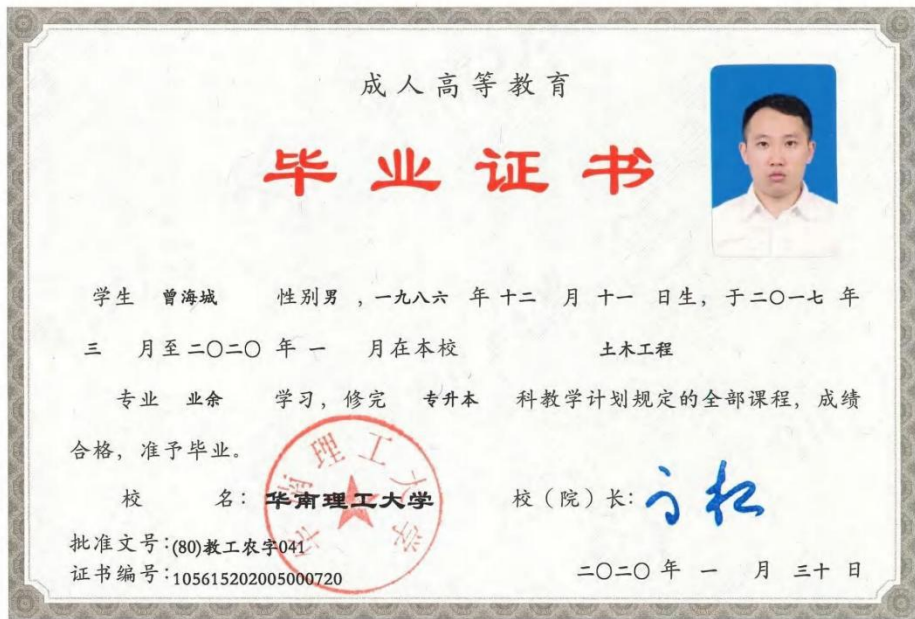 成人高等教育
毕业证书
学生 曾海城 性别 男 ，一九八六 年 十二 月 十一 日生，于二〇一七 年
三 月至 二〇二〇 年 一 月在本校 土木工程
专业 业余 学习，修完 专升本 科教学计划规定的全部课程，成绩
合格，准予毕业。
校 名：华南理工大学 校（院）长：
华南理工大学
批准文号：(80)教工农字041
证书编号：105615202005000720
二〇二〇 年 一 月 三十 日